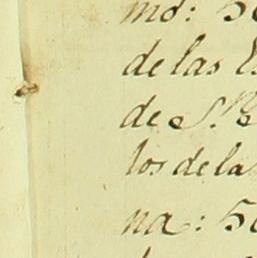 mo: 50
de las E
de S. R
los de la
na: 50